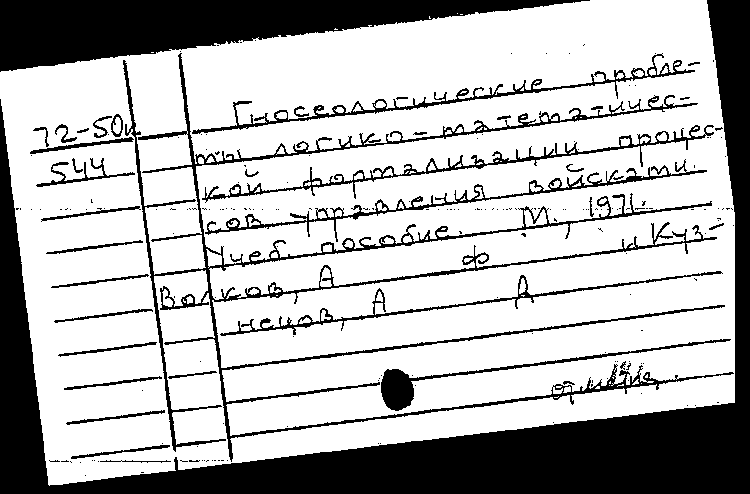 72-50к Гносеологические пробле-
544 мы логико-математичес-
кой формализации процес-
сов управления войсками.
Учеб. пособие. М., 1971.
Волков, А Ф и Куз-
нецов, А Д